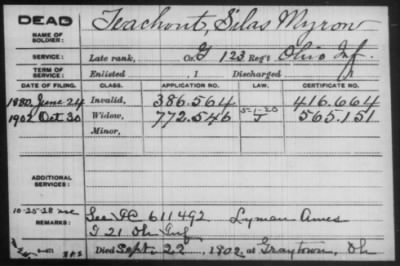 DEAD
NAME OF SOLDIER:
Teachout, Silas Myron
SERVICE:
Late rank, Co. G 123 Reg't Ohio Inf.
TERM OF SERVICE:
Enlisted , 1 Discharged , 1
DATE OF FILING. CLASS. APPLICATION NO. LAW. CERTIFICATE NO.
1880 June 24 Invalid, 386.564 416.664
1902 Oct 30 Widow, 772.546 5-1-20 J 565.151
Minor,
ADDITIONAL SERVICES:
10-25-28
REMARKS:
See PC 611492 Lyman Ames
21 Oh Inf
Died Sept. 22, 1902, at Graytown, Oh